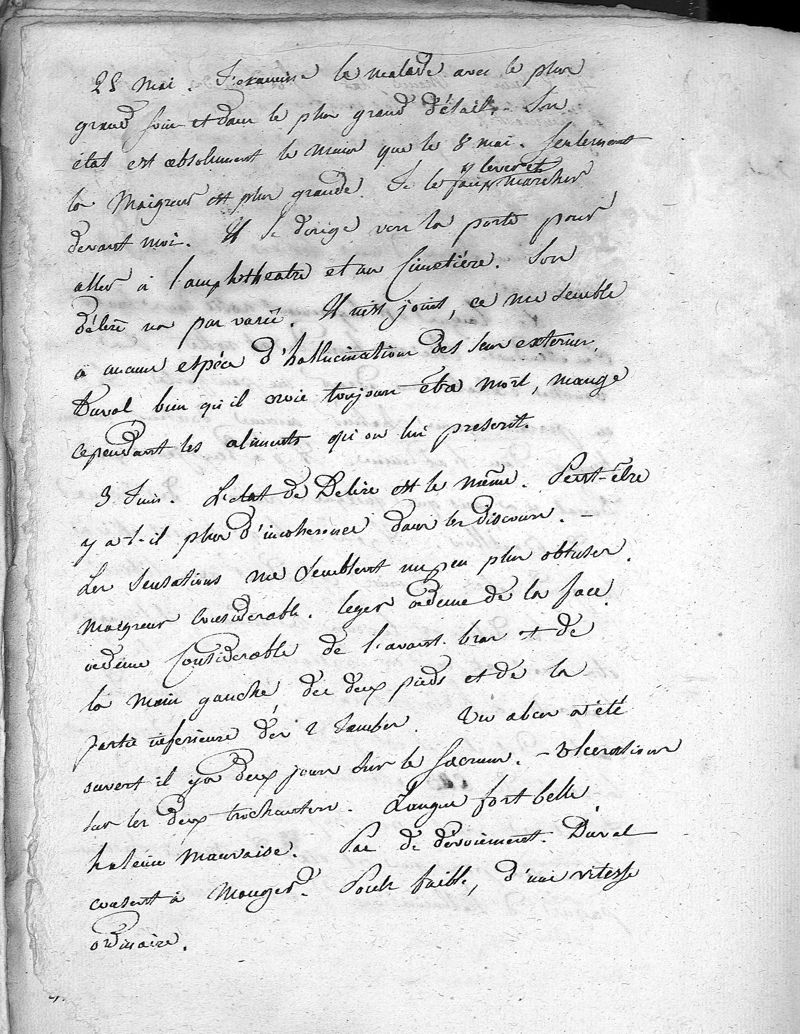 25 mai. J'examine le malade avec le plus
grand soin et dans le plus grand détail. Son
état est absolument le même que le 8 mai. Seulement
la Maigreur est plus grande. Je le fais lever et marcher
devant moi. Il se dirige vers la porte pour
aller à l'amphitheatre et au Cimetière. Son
délire n'a pas varié. Il n'est joint, ce me semble
à aucune espéce d'hallucination des sens externes.
Duval bien qu'il croie toujours être mort, mange
cependant les aliments qu'on lui prescrit.
3 Juin. L'etat de Delire est le même. Peut-être
y a-t-il plus d'incoherence dans les discours. -
Les Sensations me Semblent un peu plus obtuses.
Maigreur Considerable. leger œdeme de la face.
œdeme Considerable de l'avant-bras et de
la Main gauche des deux pieds et de la
partie inferieure des 2 Jambes. Un abcès a été
ouvert il y a deux jours sur le Sacrum. - Ulcerations
sur les deux trochanters. Langue fort belle,
haleine Mauvaise. Pas de dévoiement. Duval
consent à Manger. Pouls faible, d'une vitesse
ordinaire.